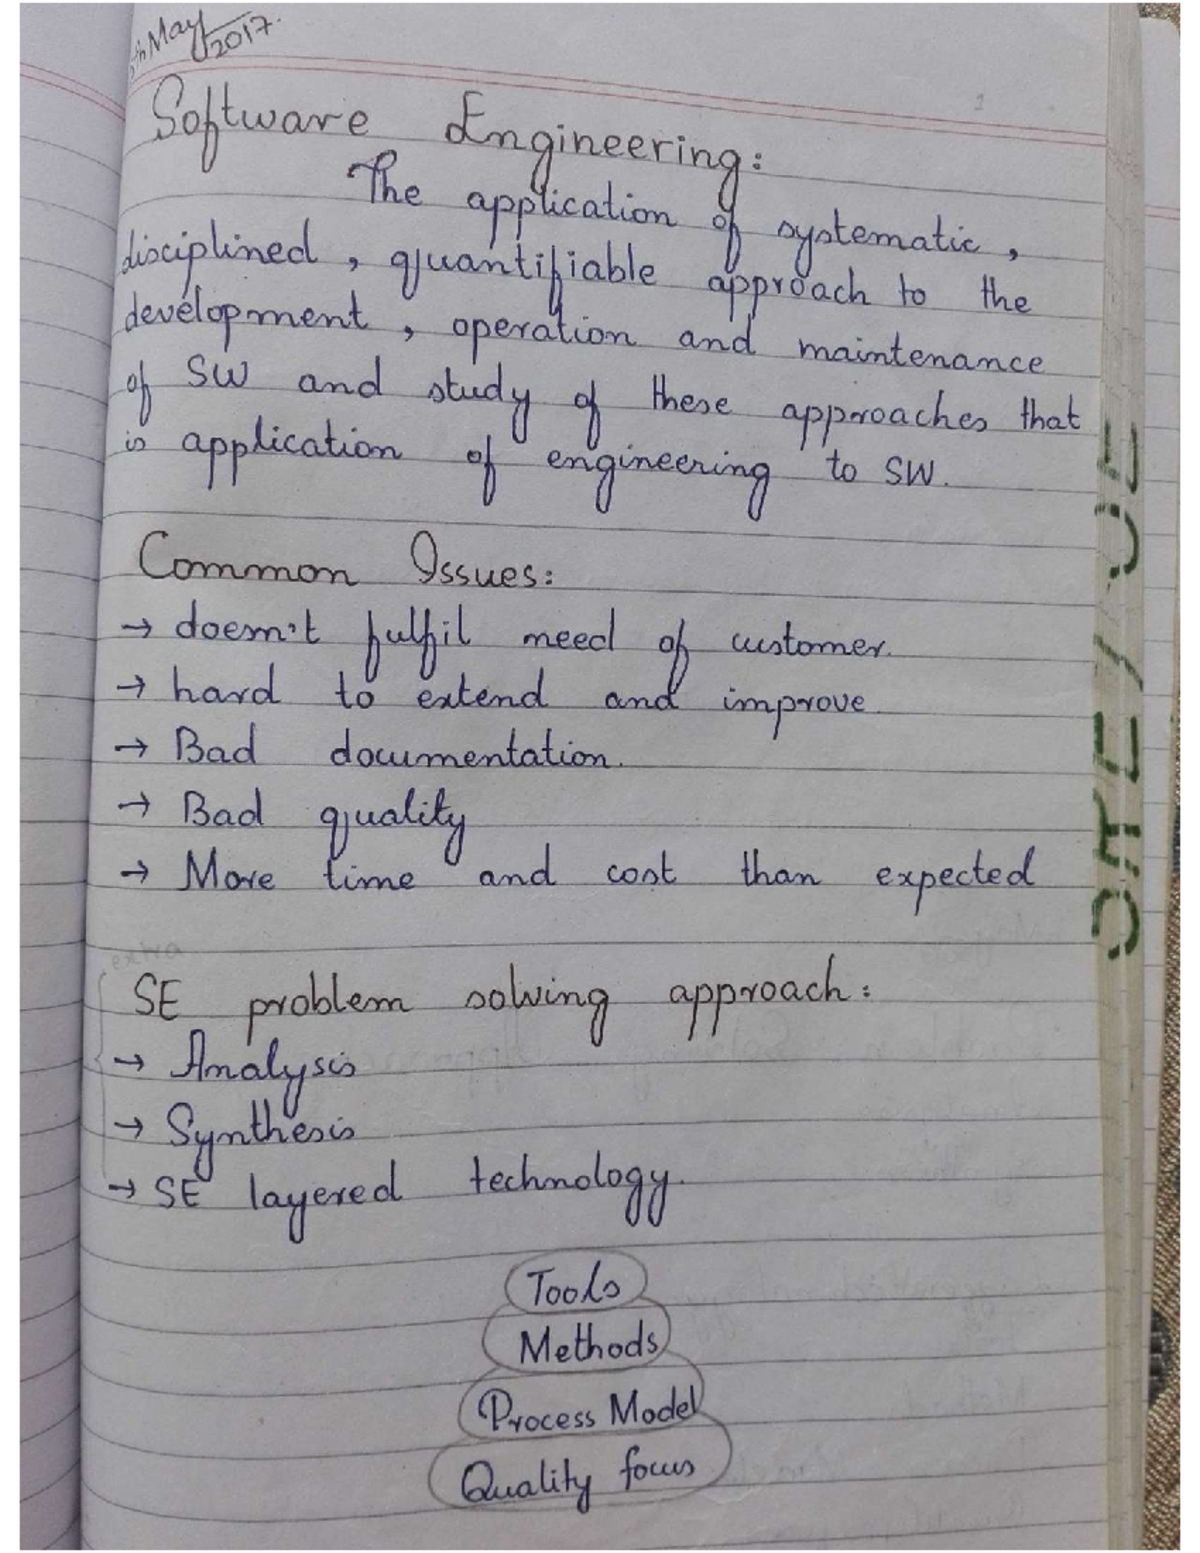 May 2017.
1
Software Engineering:
The application of systematic,
disciplined, quantifiable approach to the
development, operation and maintenance
of SW and study of these approaches that
is application of engineering to SW.
Common Issues:
→ doesn't fulfil need of customer.
→ hard to extend and improve
→ Bad documentation.
→ Bad quality
→ More time and cost than expected
extra
SE problem solving approach:
→ Analysis
→ Synthesis
→ SE layered technology.
Tools
Methods
Process Model
Quality focus